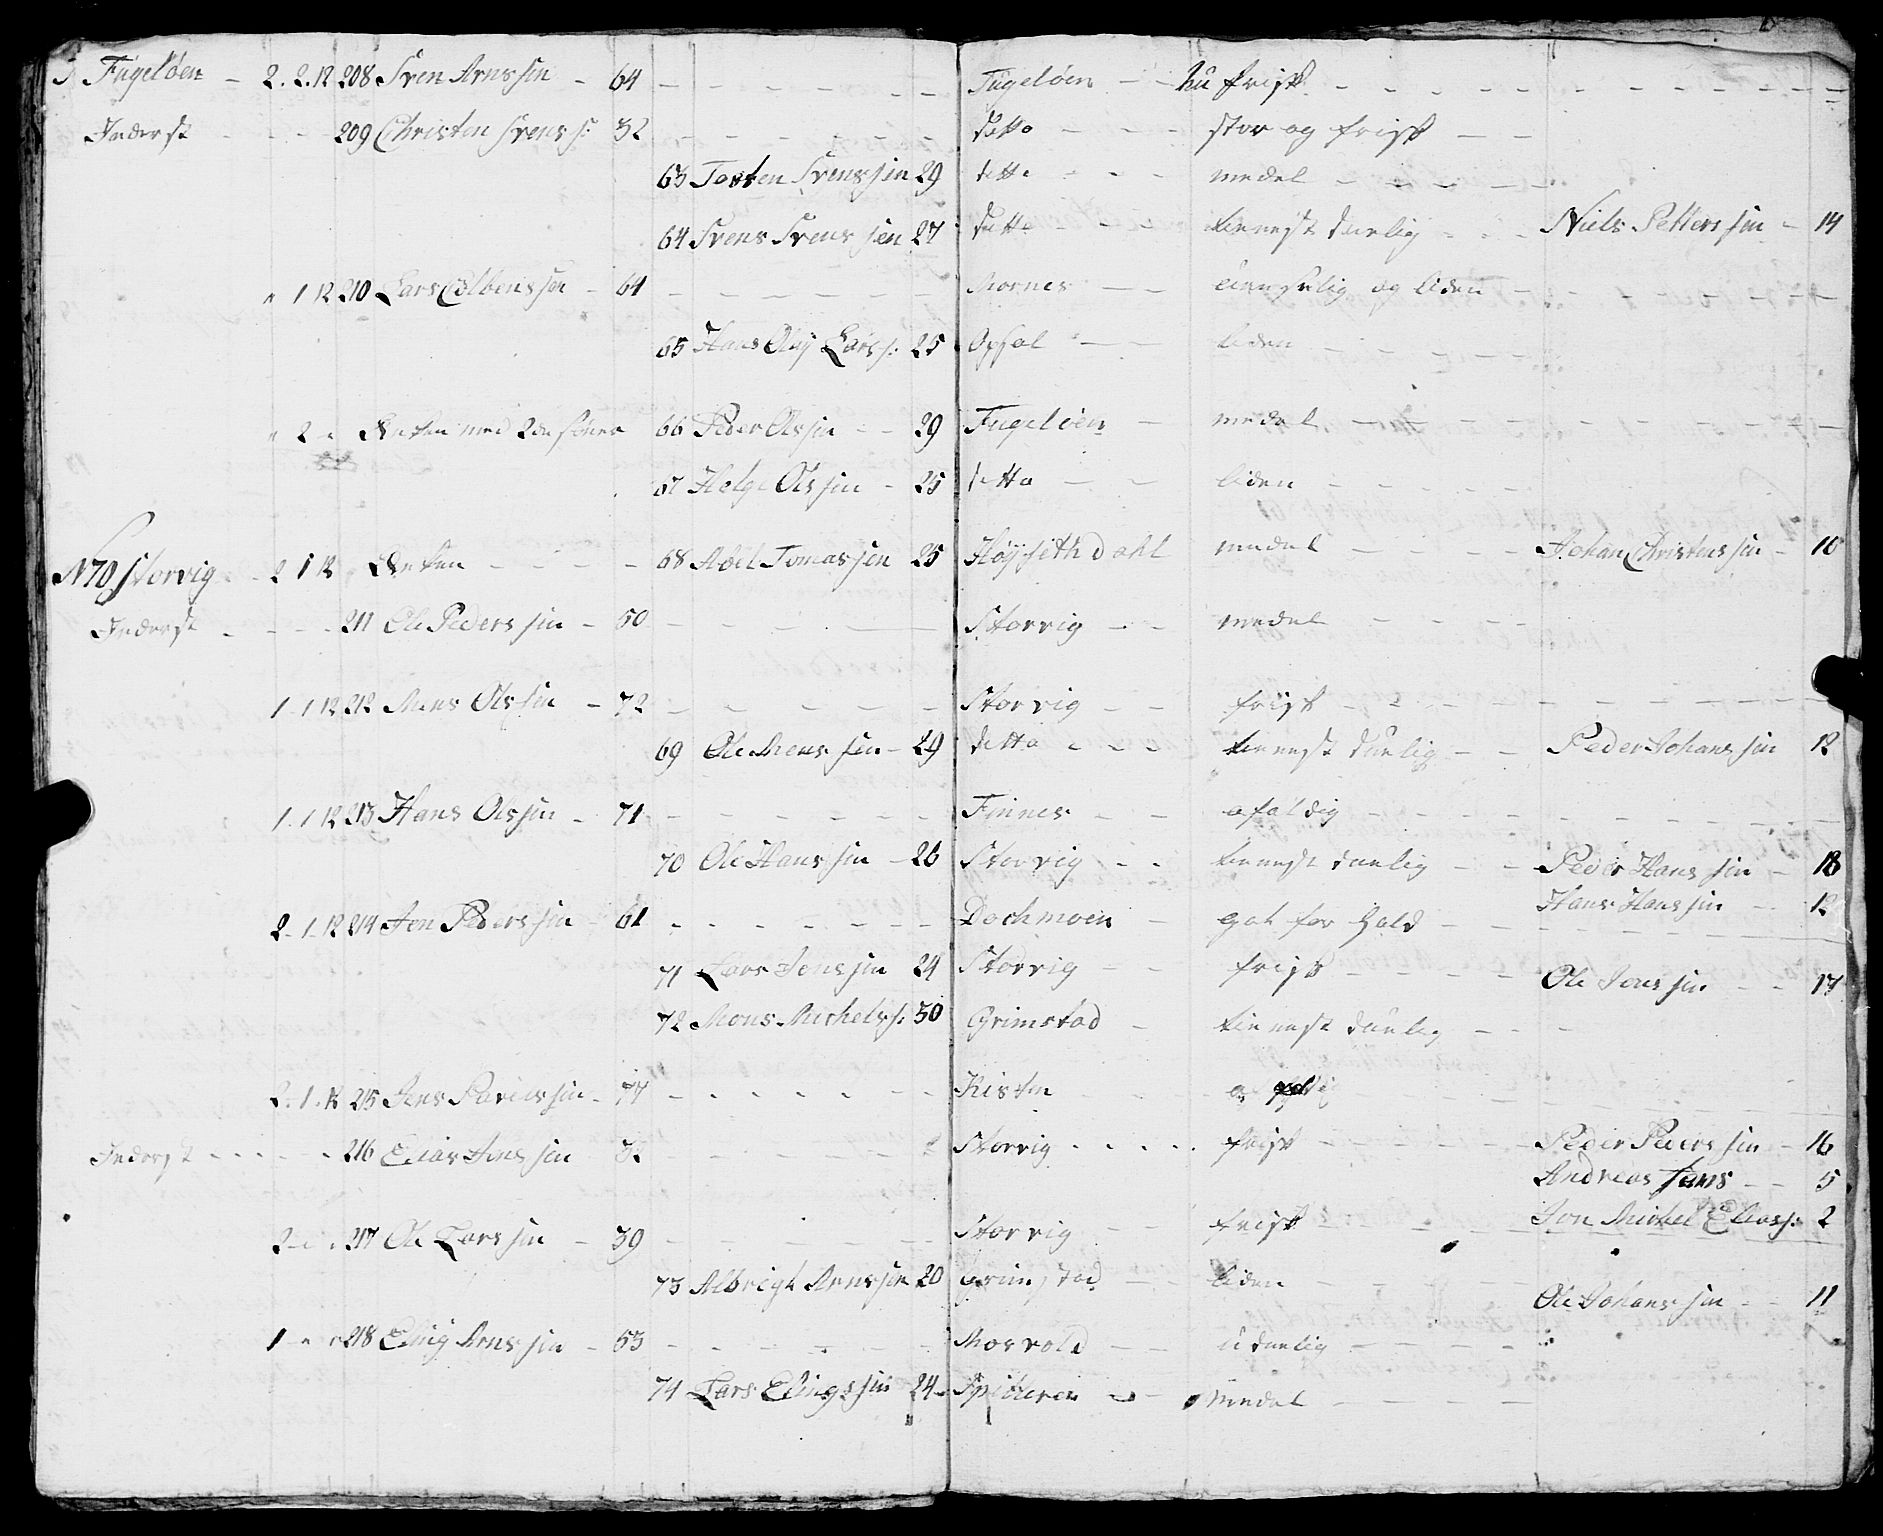 Fugeløen - 2. 2. 12 208 Sven Arnssøn - 64 - - - - - - Fugeløen - - nu frisk - - - -
Inderst - - - 209 Christen Svens s: 32 - - - - - ditto - - - stor og frisk - -
63 Tosten Svenssøn 29 ditto - - - medel - - - -
64 Svens Svenssøn 27 ditto - - - tienest duelig - - - Niels Petterssøn - 14
" 1 12 210 Lars Colbenssøn - 64 - - - - - - Mornes - - og liden - - -
65 Hans Olaj Larss: 25 Opsal - - liden - - - -
" 2 - Enken med 2de søner 66 Peder Olssøn - - 29 Fugeløen - medel - - - -
67 Helge Olssøn - 25 ditto - - liden - - - -
N70 Storvig - 2 1 12 Enken - - - - 68 Abel Tomassøn 25 Høyseth Dahl medel - - - - Johan Christenssøn - 10
Inderst - - - 211 Ole Pederssøn - 50 - - - - - Storvig - - medel - - - -
1 - 1 12 212 Mons Olssøn - 72 - - - - - Storvig - - frisk - - - -
69 Ole Menssøn - 29 ditto - - - tienest duelig - - Peder Johanssøn 12
1 - 1 12 213 Hans Olssøn - 71 - - - - - - Finnes - - afældig - - - -
70 Ole Hanssøn - 26 Storvig - - tienest duelig - - Peder Hanssøn - 18
Hans Hanssøn - 12
2 - 1 - 12 214 Jon Pederssøn - 61 - - - - - - - Dochmoen - got for Hold - - - -
71 Lars Jenssøn 24 Storvig - - frisk - - - - Ole Jonssøn - - 17
72 Mons Michelss: 30 Grimstad - tienest duelig - - -
2 - 1 - 12 215 Jens Pavelssøn - 77 - - - - - - Kisten - - -
Inderst - - - - 216 Elias Jenssøn 32 - - - - - Storvig - - - - frisk - - - - Peder Pederssøn - 16
Andreas Jens - - 5
Jon Michel Eliass: 2
2 - " - 217 Ole Larssøn - 39 - - - - - - Storvig - - frisk - - - -
73 Albrigt Arnssøn 20 Grimstad - - liden - - - - Ole Johanssøn - - 11
1 " " 218 Eling Arnssøn - 53 - - - - - - Morvold - - uduelig - - - -
74 Lars Elingssøn 24 - - - medel - - - -